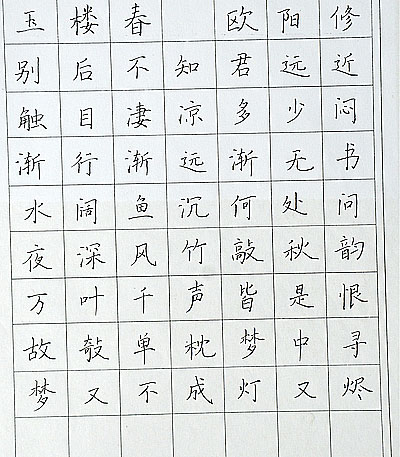 玉楼春 欧阳修
别后不知君远近
触目淒涼多少闷
渐行渐远渐无书
水阔鱼沉何处问
夜深风竹敲秋韵
万叶千声皆是恨
故敧单枕梦中寻
梦又不成灯又烬